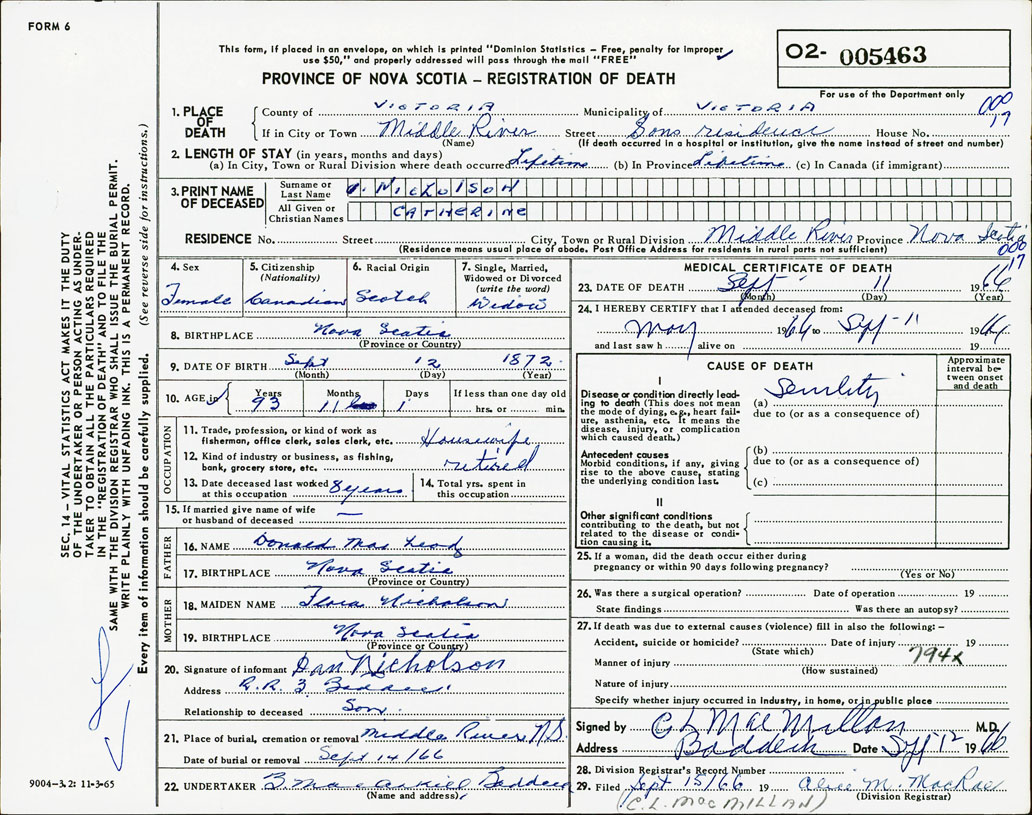 FORM 6
This form, if placed in an envelope, on which is printed "Dominion Statistics – Free, penalty for improper
use $50," and properly addressed will pass through the mail "FREE"
O2- 005463
PROVINCE OF NOVA SCOTIA – REGISTRATION OF DEATH
For use of the Department only
000
17
1. PLACE OF DEATH
County of VICTORIA Municipality of VICTORIA
If in City or Town Middle River Street Sons residence House No.
(Name) (If death occurred in a hospital or institution, give the name instead of street and number)
2. LENGTH OF STAY (in years, months and days)
(a) In City, Town or Rural Division where death occurred Lifetime (b) In Province Lifetime (c) In Canada (if immigrant)
3. PRINT NAME OF DECEASED
Surname or Last Name NICHOLSON
All Given or Christian Names CATHERINE
RESIDENCE No. Street City, Town or Rural Division Middle River Province Nova Scotia
(Residence means usual place of abode. Post Office Address for residents in rural parts not sufficient)
000
17
4. Sex
Female
5. Citizenship
(Nationality)
Canadian
6. Racial Origin
Scotch
7. Single, Married,
Widowed or Divorced
(write the word)
Widow
8. BIRTHPLACE Nova Scotia
(Province or Country)
9. DATE OF BIRTH Sept 12 1872
(Month) (Day) (Year)
10. AGE in
Years Months Days If less than one day old
93 11 1 hrs. or min.
OCCUPATION
11. Trade, profession, or kind of work as
fisherman, office clerk, sales clerk, etc. Housewife
12. Kind of industry or business, as fishing,
bank, grocery store, etc. retired
13. Date deceased last worked
at this occupation 8 years
14. Total yrs. spent in
this occupation
15. If married give name of wife
or husband of deceased —
FATHER
16. NAME Donald MacLeod
17. BIRTHPLACE Nova Scotia
(Province or Country)
MOTHER
18. MAIDEN NAME Flora Nicholson
19. BIRTHPLACE Nova Scotia
(Province or Country)
20. Signature of informant Dan Nicholson
Address R.R. 3 Baddeck
Relationship to deceased Son
21. Place of burial, cremation or removal Middle River N.S.
Date of burial or removal Sept 14/66
22. UNDERTAKER Baddeck
(Name and address)
MEDICAL CERTIFICATE OF DEATH
23. DATE OF DEATH Sept 11 1966
(Month) (Day) (Year)
24. I HEREBY CERTIFY that I attended deceased from:
May 1966 to Sept-11 1966
and last saw h alive on 19
CAUSE OF DEATH
Approximate interval between onset and death
I
Disease or condition directly leading
to death (This does not mean
the mode of dying, e.g., heart failure,
asthenia, etc. It means the
disease, injury, or complication
which caused death.)
(a) Senility
due to (or as a consequence of)
Antecedent causes
Morbid conditions, if any, giving
rise to the above cause, stating
the underlying condition last.
(b)
due to (or as a consequence of)
(c)
II
Other significant conditions
contributing to the death, but not
related to the disease or condition
causing it.
25. If a woman, did the death occur either during
pregnancy or within 90 days following pregnancy?
(Yes or No)
26. Was there a surgical operation? Date of operation 19
State findings Was there an autopsy?
27. If death was due to external causes (violence) fill in also the following: –
Accident, suicide or homicide? Date of injury 19
(State which)
794x
Manner of injury
(How sustained)
Nature of injury
Specify whether injury occurred in industry, in home, or in public place
Signed by C L MacMillan M.D.
Address Baddeck Date Sept 12 1966
28. Division Registrar's Record Number
29. Filed Sept 15/66 19 Alice M. MacRae
(C.L. MACMILLAN) (Division Registrar)
SEC. 14 – VITAL STATISTICS ACT MAKES IT THE DUTY
OF THE UNDERTAKER OR PERSON ACTING AS UNDERTAKER
TO OBTAIN ALL THE PARTICULARS REQUIRED
IN THE "REGISTRATION OF DEATH" AND TO FILE THE
SAME WITH THE DIVISION REGISTRAR WHO SHALL ISSUE THE BURIAL PERMIT.
WRITE PLAINLY WITH UNFADING INK. THIS IS A PERMANENT RECORD.
Every item of information should be carefully supplied. (See reverse side for instructions.)
9004-3.2: 11-3-65